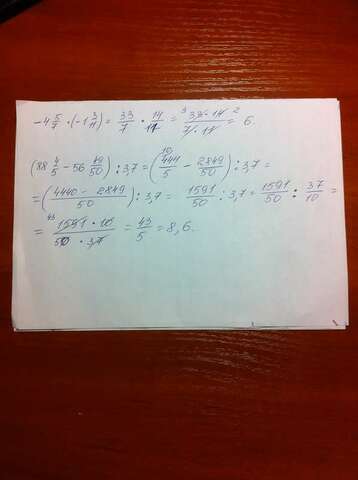 -4 5/7 · (-1 3/11) = 33/7 · 14/11 = 33·14/7·11 = 6.
(88 4/5 - 56 49/50) : 3,7 = (444/5 - 2849/50) : 3,7 =
= (4440 - 2849/50) : 3,7 = 1591/50 : 3,7 = 1591/50 : 37/10 =
= 1591 · 10/50 · 37 = 43/5 = 8,6.